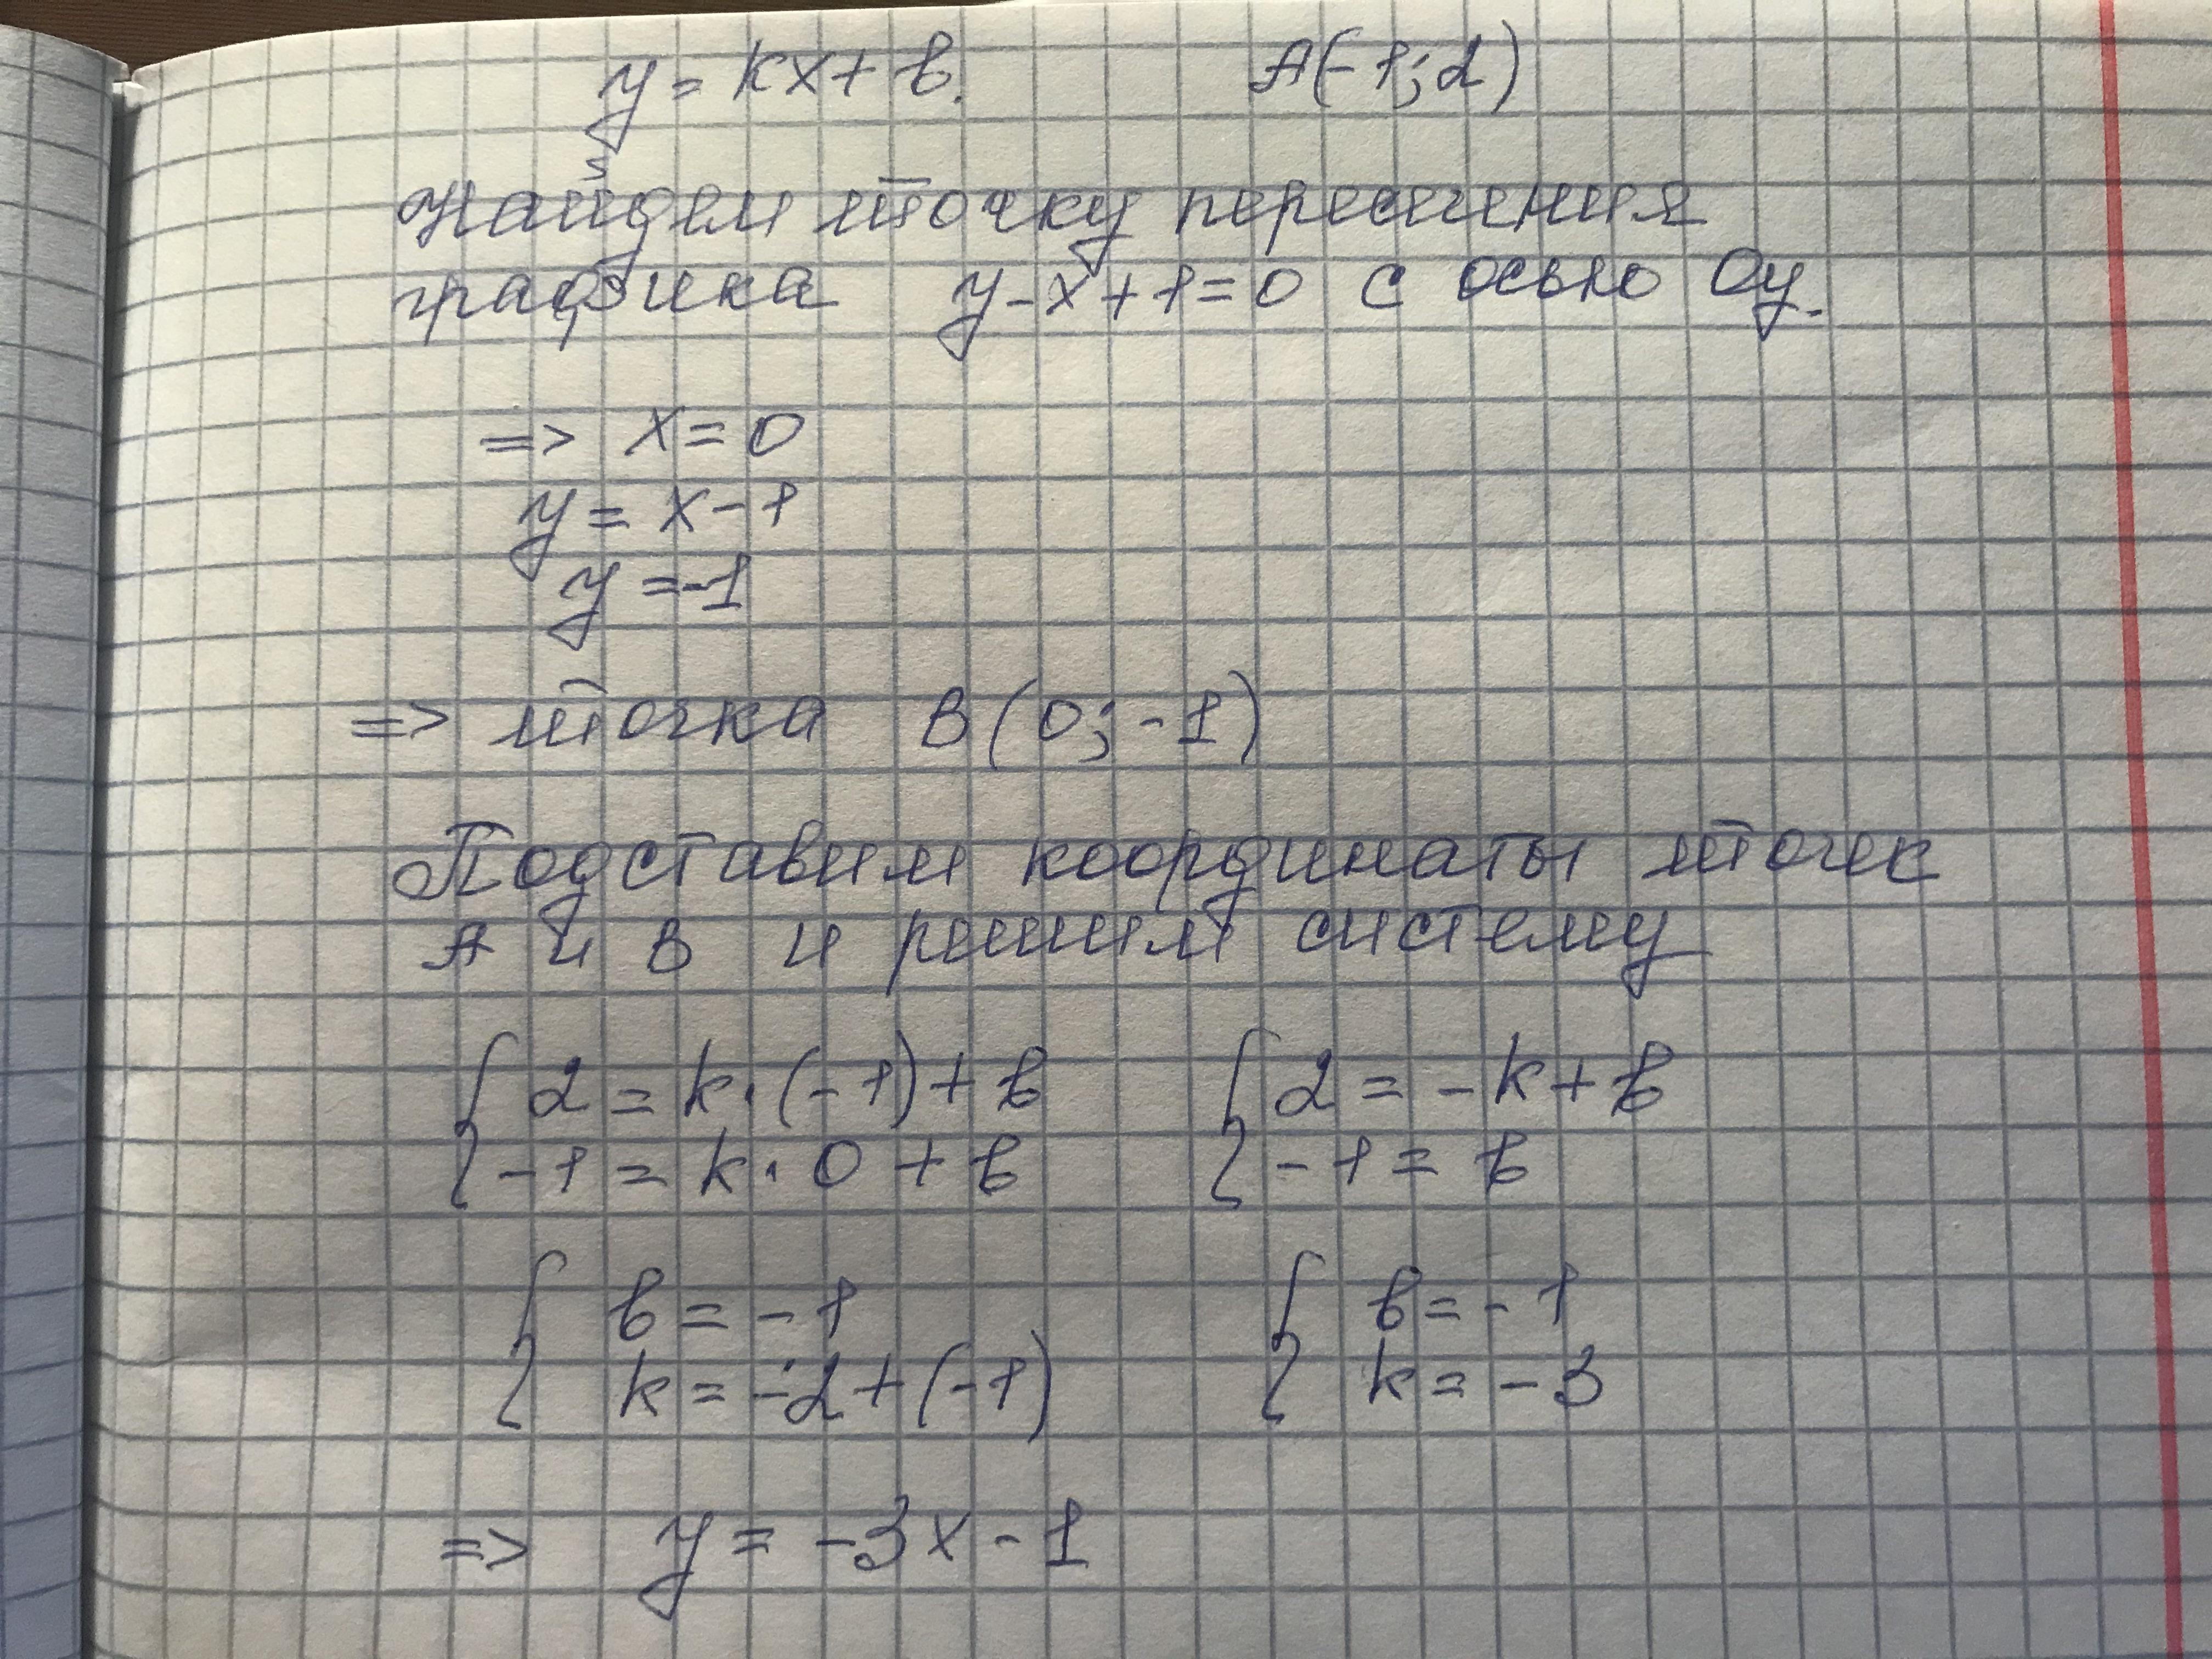 y = kx + b. A(-1; 2)
Найдем точку пересечения
графика y - x + 1 = 0 с осью Oy.
=> x = 0
y = x - 1
y = -1
=> точка B(0; -1)
Подставим координаты точек
A и B и решим систему
{ 2 = k·(-1) + b { 2 = -k + b
{ -1 = k·0 + b { -1 = b
{ b = -1 { b = -1
{ k = -2 + (-1) { k = -3
=> y = -3x - 1